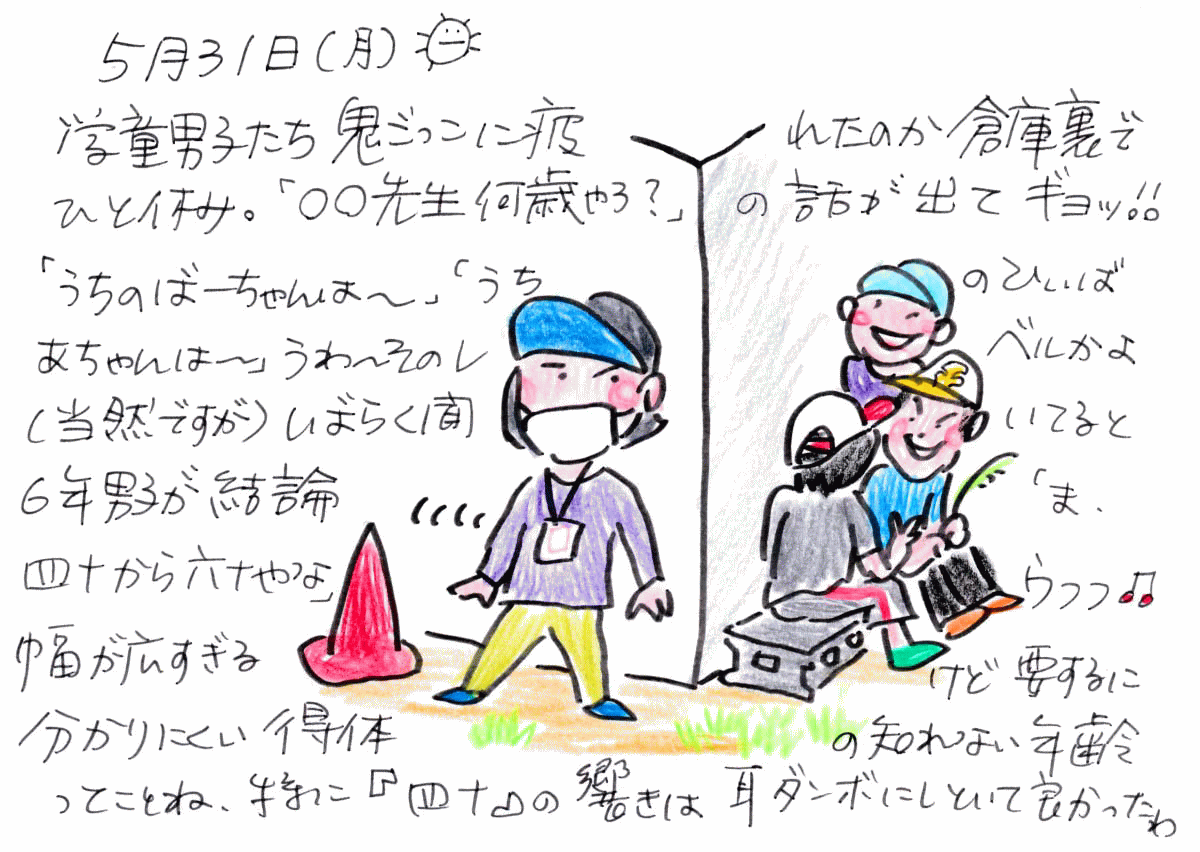 5月31日(月)
学童男子たち鬼ごっこに疲れたのか倉庫裏で
ひと休み。「〇〇先生何歳やろ?」の話が出てギョッ!!
「うちのばーちゃんは〜」「うちのひいば
あちゃんは〜」うわ〜そのレベルかよ
(当然ですが)しばらく聞いてると
6年男子が結論「ま、
四十から六十やな」うふふ♫
幅が広すぎるけど要するに
分かりにくい得体の知れない年齢
ってことね、特に『四十』の響きは耳ダンボにしといて良かったわ